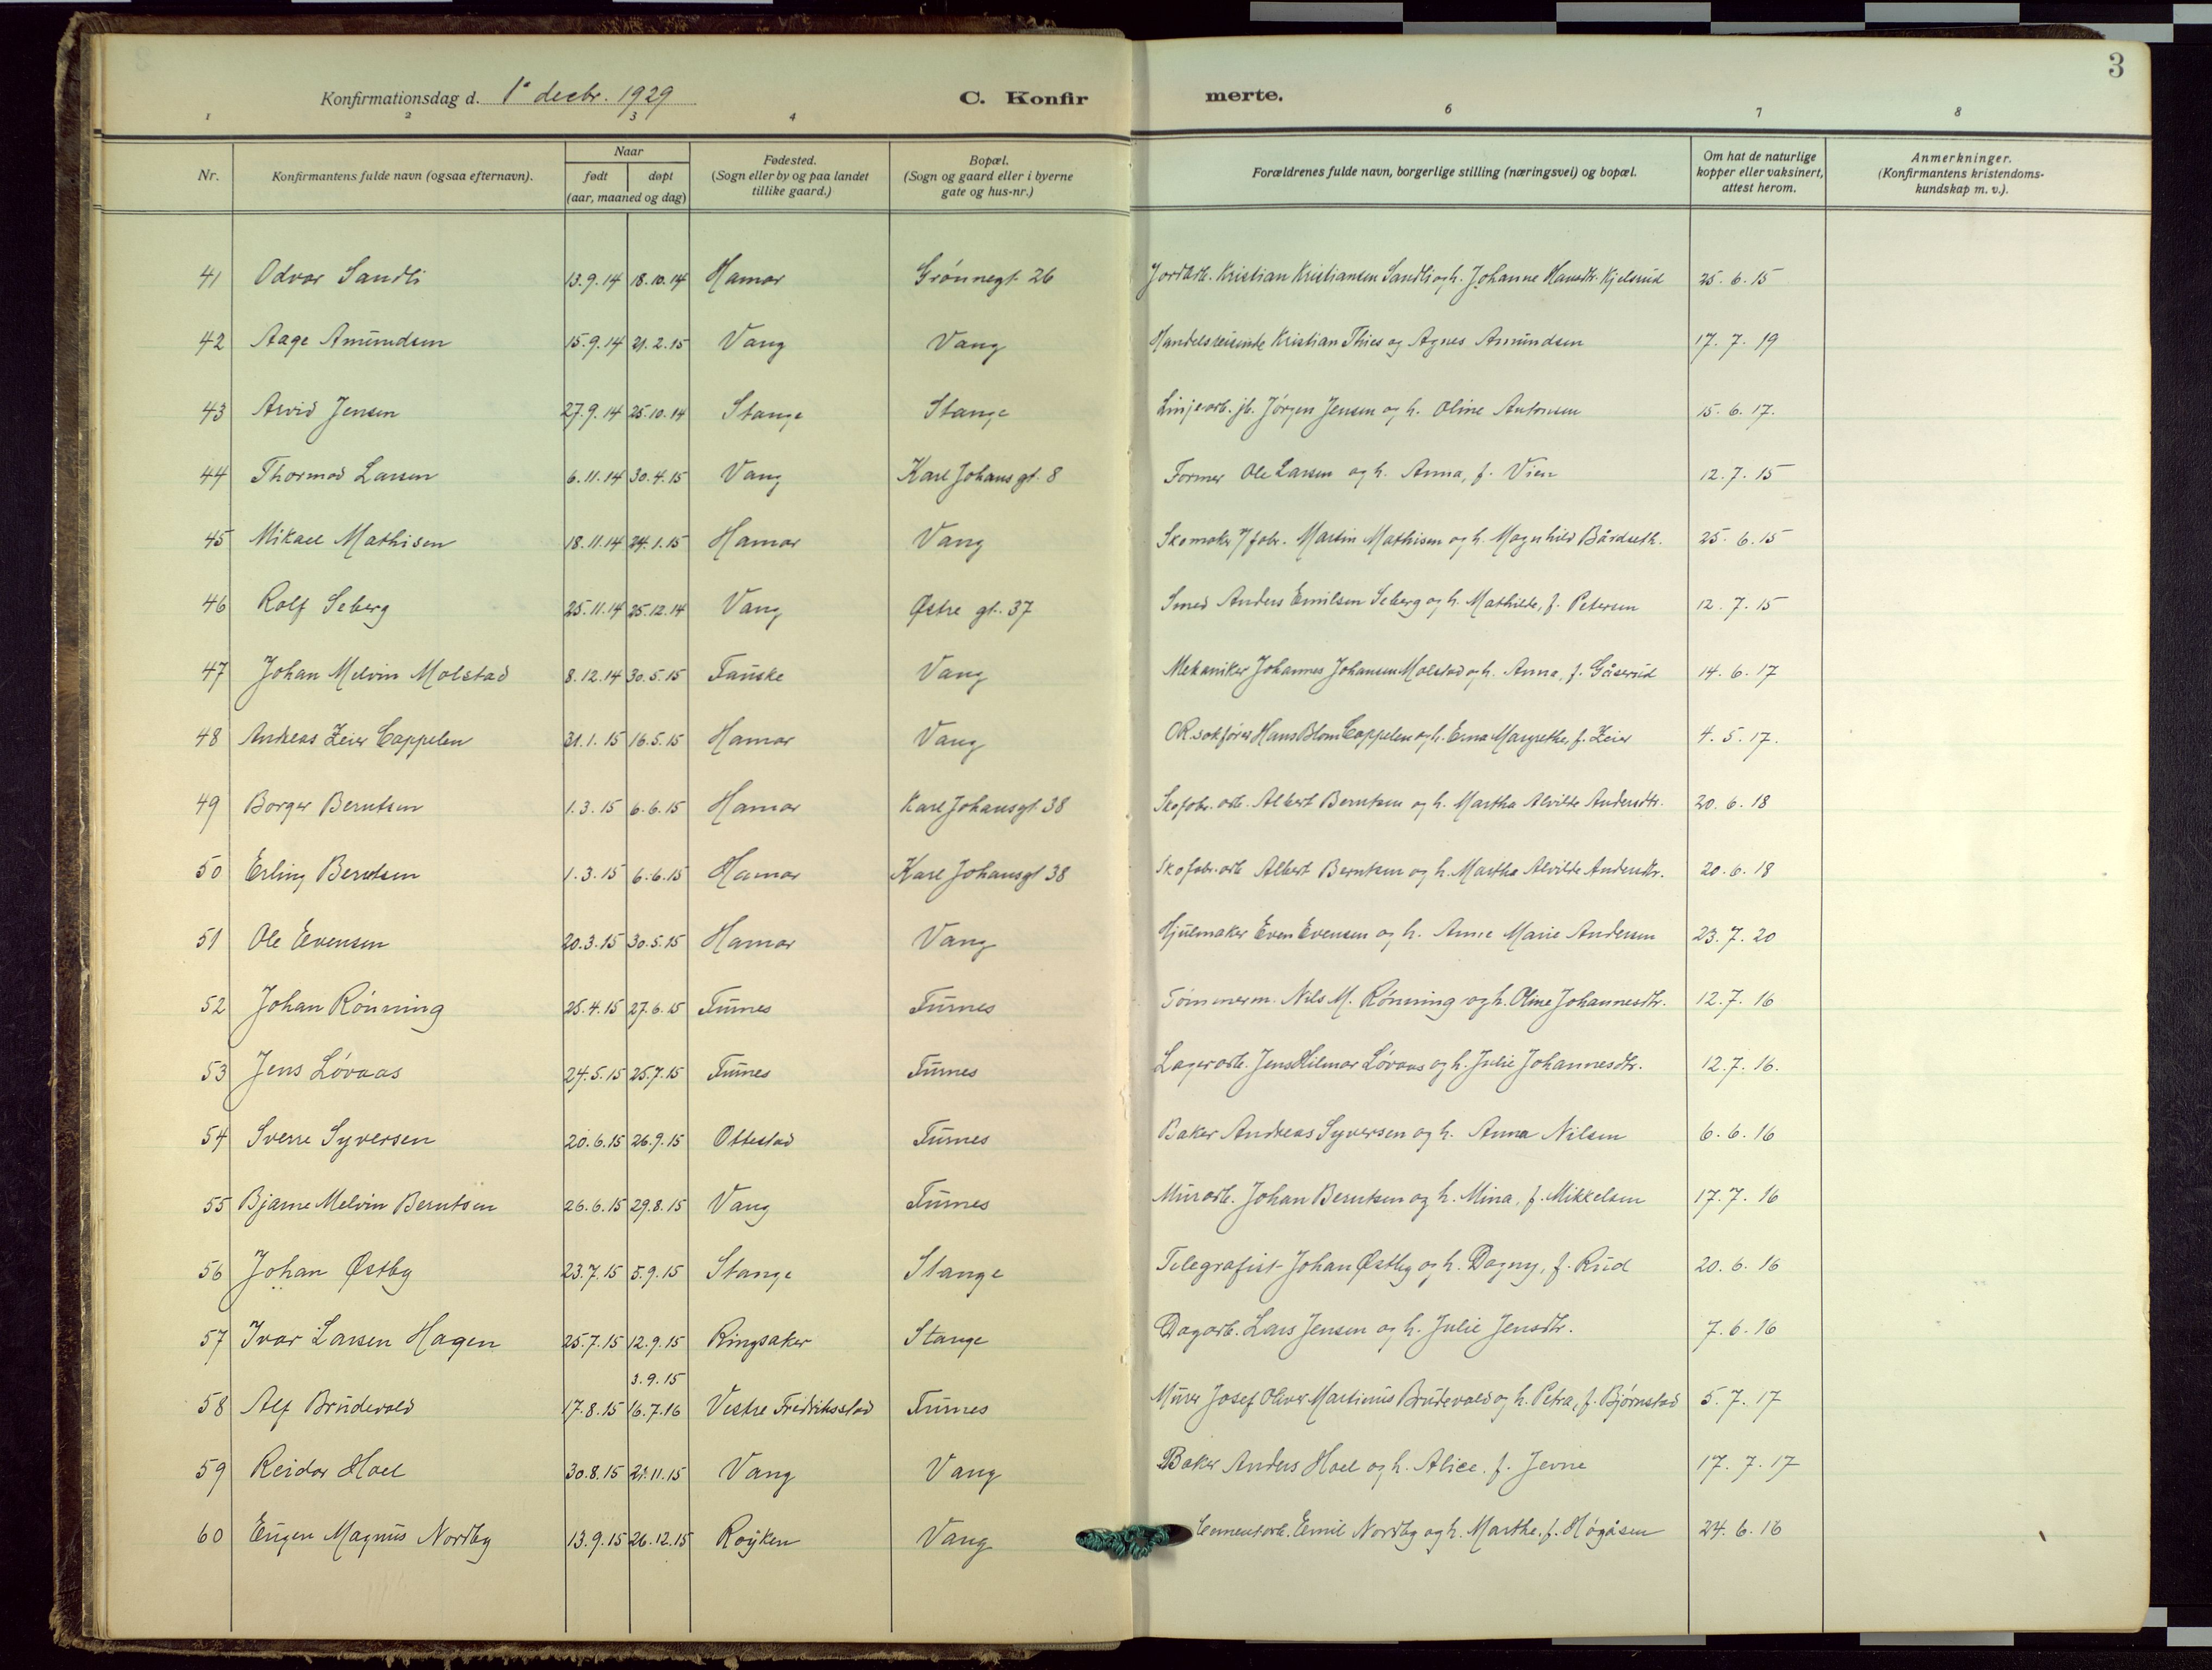 3
Konfirmationsdag d. 1ᵉ decbr. 1929 C. Konfir merte.
1 2 3 4 6 7 8
Nr.
Konfirmantens fulde navn (ogsaa efternavn).
Naar
født døpt
(aar, maaned og dag)
Fødested.
(Sogn eller by og paa landet
tillike gaard.)
Bopæl.
(Sogn og gaard eller i byerne
gate og hus-nr.)
Forældrenes fulde navn, borgerlige stilling (næringsvei) og bopæl.
Om hat de naturlige
kopper eller vaksinert,
attest herom.
Anmerkninger.
(Konfirmantens kristendoms-
kundskap m. v.).
41 Odvar Sandli 13.9.14 18.10.14 Hamar Grónnegt 26 Jordbrb. Kristian Kristiansen Sandli og h. Johanne Hansdtr. Kjelsrud 25.6.15
42 Aage Amundsen 15.9.14 21.2.15 Vang Vang Handelsreisende Kristian Thies og Agnes Amundsen 17.7.19
43 Arvid Jensen 27.9.14 25.10.14 Stange Stange Linjearb. jb. Jórgen Jensen og h. Oline Antonsen 15.6.17.
44 Thormod Larsen 6.11.14 30.4.15 Vang Karl Johans gt. 8 Former Ole Larsen og h. Anna, f. Vien 12.7.15
45 Mikael Mathisen 18.11.14 24.1.15 Hamar Vang Skomaker v/fabr. Martin Mathisen og h. Magnhild Bårdseth. 25.6.15
46 Rolf Seberg 25.11.14 25.12.14 Vang Østre gt. 37 Smed Anders Emilsen Seberg og h. Mathilde, f. Petersen 12.7.15
47 Johan Melvin Molstad 8.12.14 30.5.15 Fauske Vang Mekaniker Johannes Johansen Molstad og h. Anna, f. Gåserud 14.6.17
48 Andreas Zeier Cappelen 31.1.15 16.5.15 Hamar Vang O.R.sakfører Hans Blom Cappelen og h. Erna Margrethe, f. Zeier 4.5.17.
49 Borger Berntsen 1.3.15 6.6.15 Hamar Karl Johansgt 38 Skofabr. arb. Albert Berntsen og h. Martha Alvilde Andersdtr. 20.6.18
50 Erling Berntsen 1.3.15 6.6.15 Hamar Karl Johansgt 38 Skofabr. arb Albert Berntsen og h. Martha Alvilde Andersdtr. 20.6.18
51 Ole Evensen 20.3.15 30.5.15 Hamar Vang Hjulmaker Even Evensen og h. Anne Marie Andersen 23.7.20
52 Johan Rónning 25.4.15 27.6.15 Furnes Furnes Tómmerm. Nils M. Rónning og h. Oline Johannesdtr. 12.7.16
53 Jens Lóvaas 24.5.15 25.7.15 Furnes Furnes Lagerarb. Jens Hilmar Lóvaas og h. Julie Johannesdtr. 12.7.16.
54 Sverre Syversen 20.6.15 26.9.15 Ottestad Furnes Baker Andreas Syversen og h. Anna Nilsen 6.6.16
55 Bjarne Melvin Berntsen 26.6.15 29.8.15 Vang Furnes Murarb. Johan Berntsen og h. Mina, f. Mikkelsen 17.7.16
56 Johan Østby 23.7.15 5.9.15 Stange Stange Telegrafist Johan Østby og h. Dagny, f. Rud 20.6.16
57 Ivar Larsen Hagen 25.7.15 12.9.15 Ringsaker Stange Dagarb. Lars Jensen og h. Julie Jensdtr. 7.6.16
3.9.15
58 Alf Brudevold 17.8.15 16.7.16 Vestre Fredriksstad Furnes Murer Josef Oliver Martinius Brudevold og h. Petra, f. Bjørnstad 5.7.17
59 Reidar Hoel 30.8.15 21.11.15 Vang Vang Baker Anders Hoel og h. Alice, f. Jevne 17.7.17
60 Eugen Magnus Nordby 13.9.15 26.12.15 Royken Vang Cementarb. Emil Nordby og h. Marthe, f. Hógåsen 24.6.16